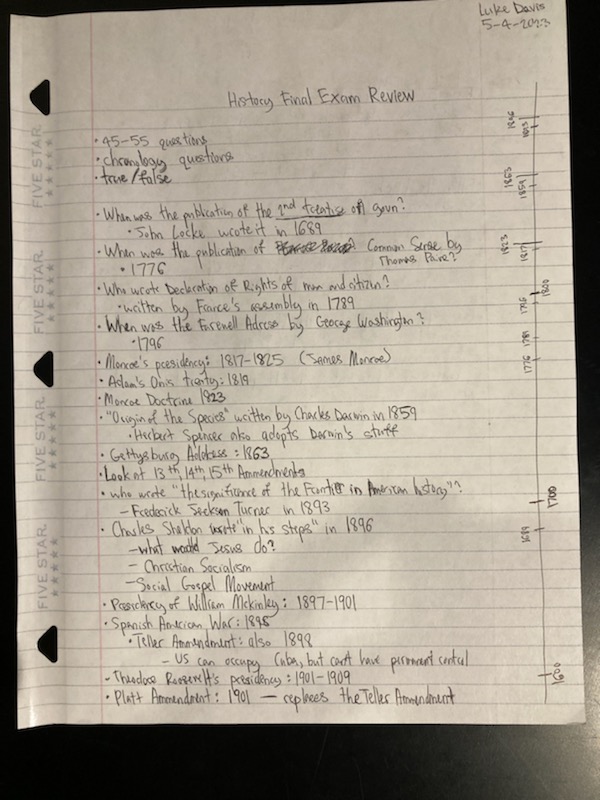 Luke Davis
5-4-2023
History Final Exam Review
• 45-55 questions
• chronology questions
• true/false
• When was the publication of the 2nd treatise of govn?
• John Locke wrote it in 1689
• When was the publication of Common Sense by
Thomas Paine?
• 1776
• Who wrote Declaration of Rights of man and citizen?
• written by France's assembly in 1789
• When was the Farewell Adress by George Washington?
• 1796
• Monroe's presidency: 1817-1825 (James Monroe)
• Adam's Onis treaty: 1819
• Monroe Doctrine 1823
• "Origin of the Species" written by Charles Darwin in 1859
• Herbert Spencer also adopts Darwin's stuff
• Gettysburg Address: 1863
• Look at 13th, 14th, 15th Ammendments
• who wrote "the significance of the Frontier in American history"?
- Frederick Jackson Turner in 1893
• Charles Sheldon wrote "in his steps" in 1896
- what would Jesus do?
- Christian Socialism
- Social Gospel Movement
• Presidency of William Mckinley: 1897-1901
• Spanish American War: 1898
• Teller Ammendment: also 1898
- US can occupy Cuba, but can't have permanent control
- Theodore Roosevelt's presidency: 1901-1909
• Platt Ammendment: 1901 — replaces the Teller Ammendment
1896
1893
1863
1859
1823
1817
1800
1796
1781
1776
1700
1689
1600
FIVE STAR
FIVE STAR
FIVE STAR
FIVE STAR